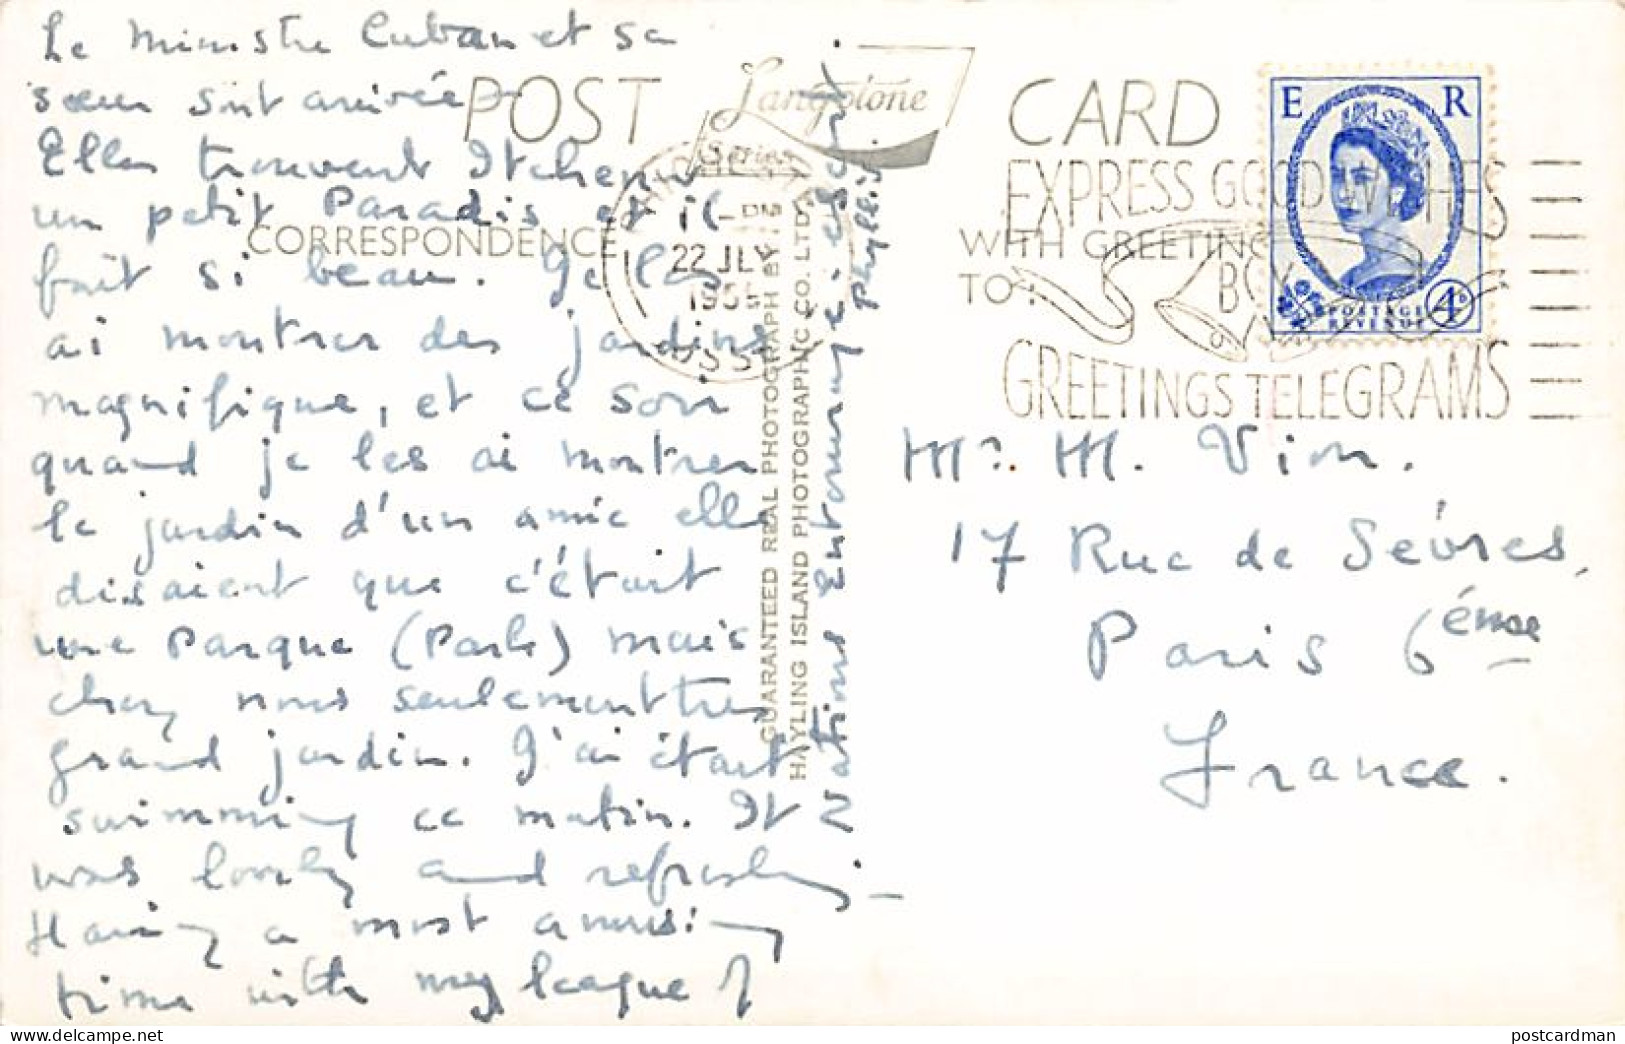 Le Ministre Cuban et sa
sœur sont arrivée
Elles trouvent Itchenor
un petit Paradis et il
fait si beau. Je les
ai montrer des jardins
magnifique, et ce soir
quand je les ai montrer
le jardin d'un amie elle
disaient que c'était
une Parque (Park) mais
chez nous seulement tres
grand jardin. J'ai était
swimming ce matin. It
was lovely and refreshing.
Having a most amusing
time with my league of
Nations entourage
Phyllis.
POST CARD
Langstone
Series
CORRESPONDENCE
WITH GREETINGS
TO:
22 JLY
GUARANTEED REAL PHOTOGRAPH BY
HAYLING ISLAND PHOTOGRAPHIC CO. LTD.
EXPRESS GOOD WISHES
BY
GREETINGS TELEGRAMS
E R
POSTAGE
REVENUE
4D
Mr. M. Vion.
17 Rue de Sèvres,
Paris 6ème
France.
Delcampe.net
postcardman